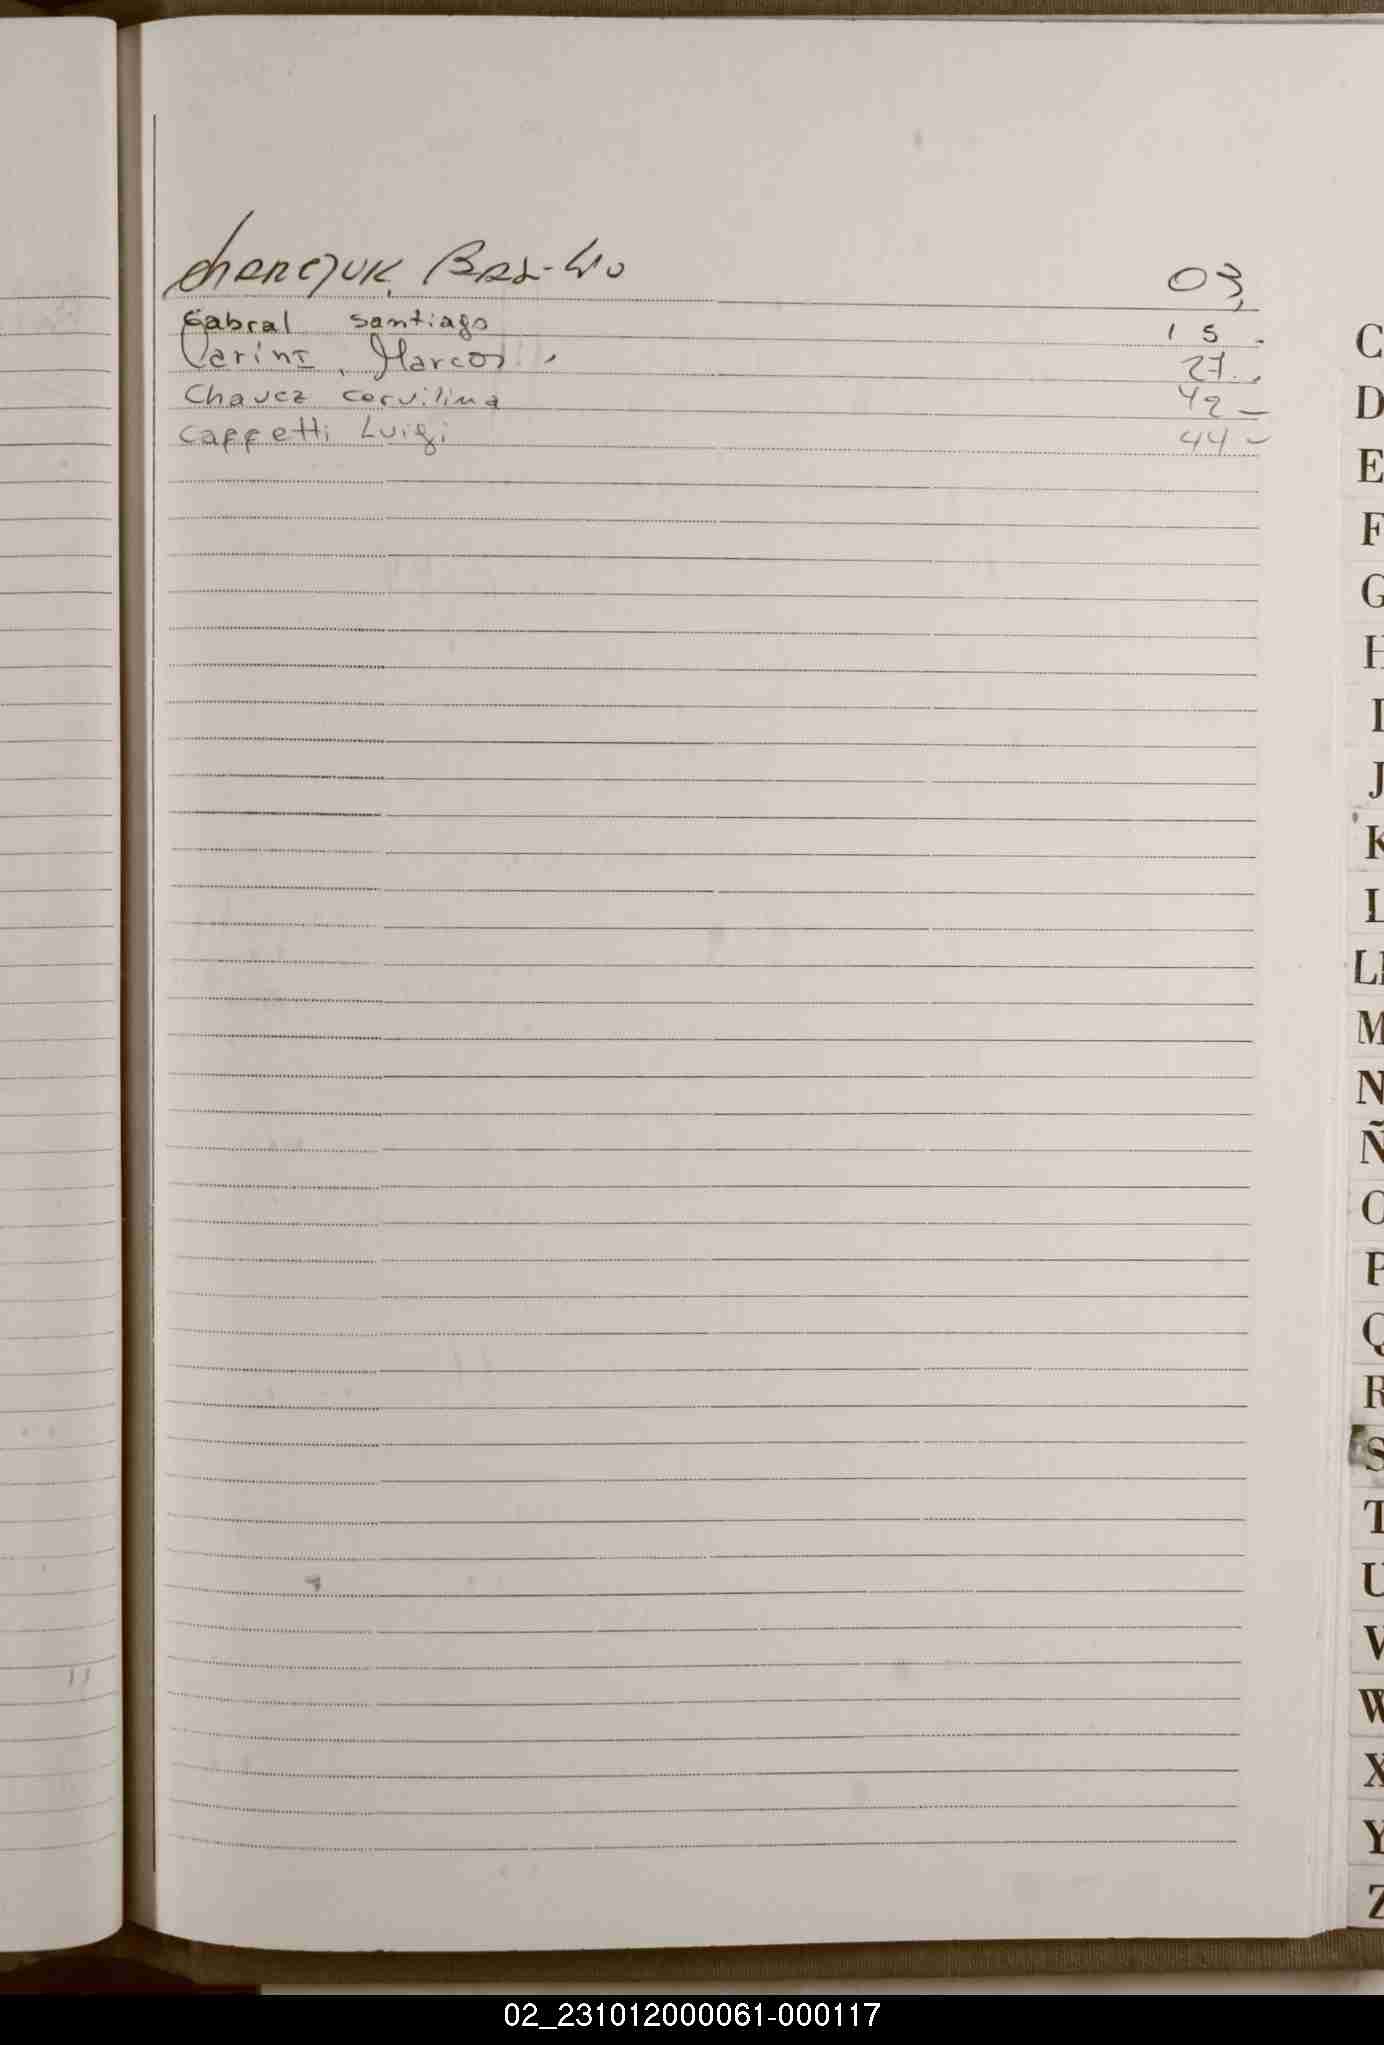 Chanczuk, Basilio 03,
Cabral Santiago 15 .
Carini, Marcos . 27 .
Chavez Corvilina 42 -
Cappetti Luigi 44 -
C
D
E
F
G
H
I
J
K
L
LL
M
N
Ñ
O
P
Q
R
S
T
U
V
W
X
Y
Z
02_231012000061-000117